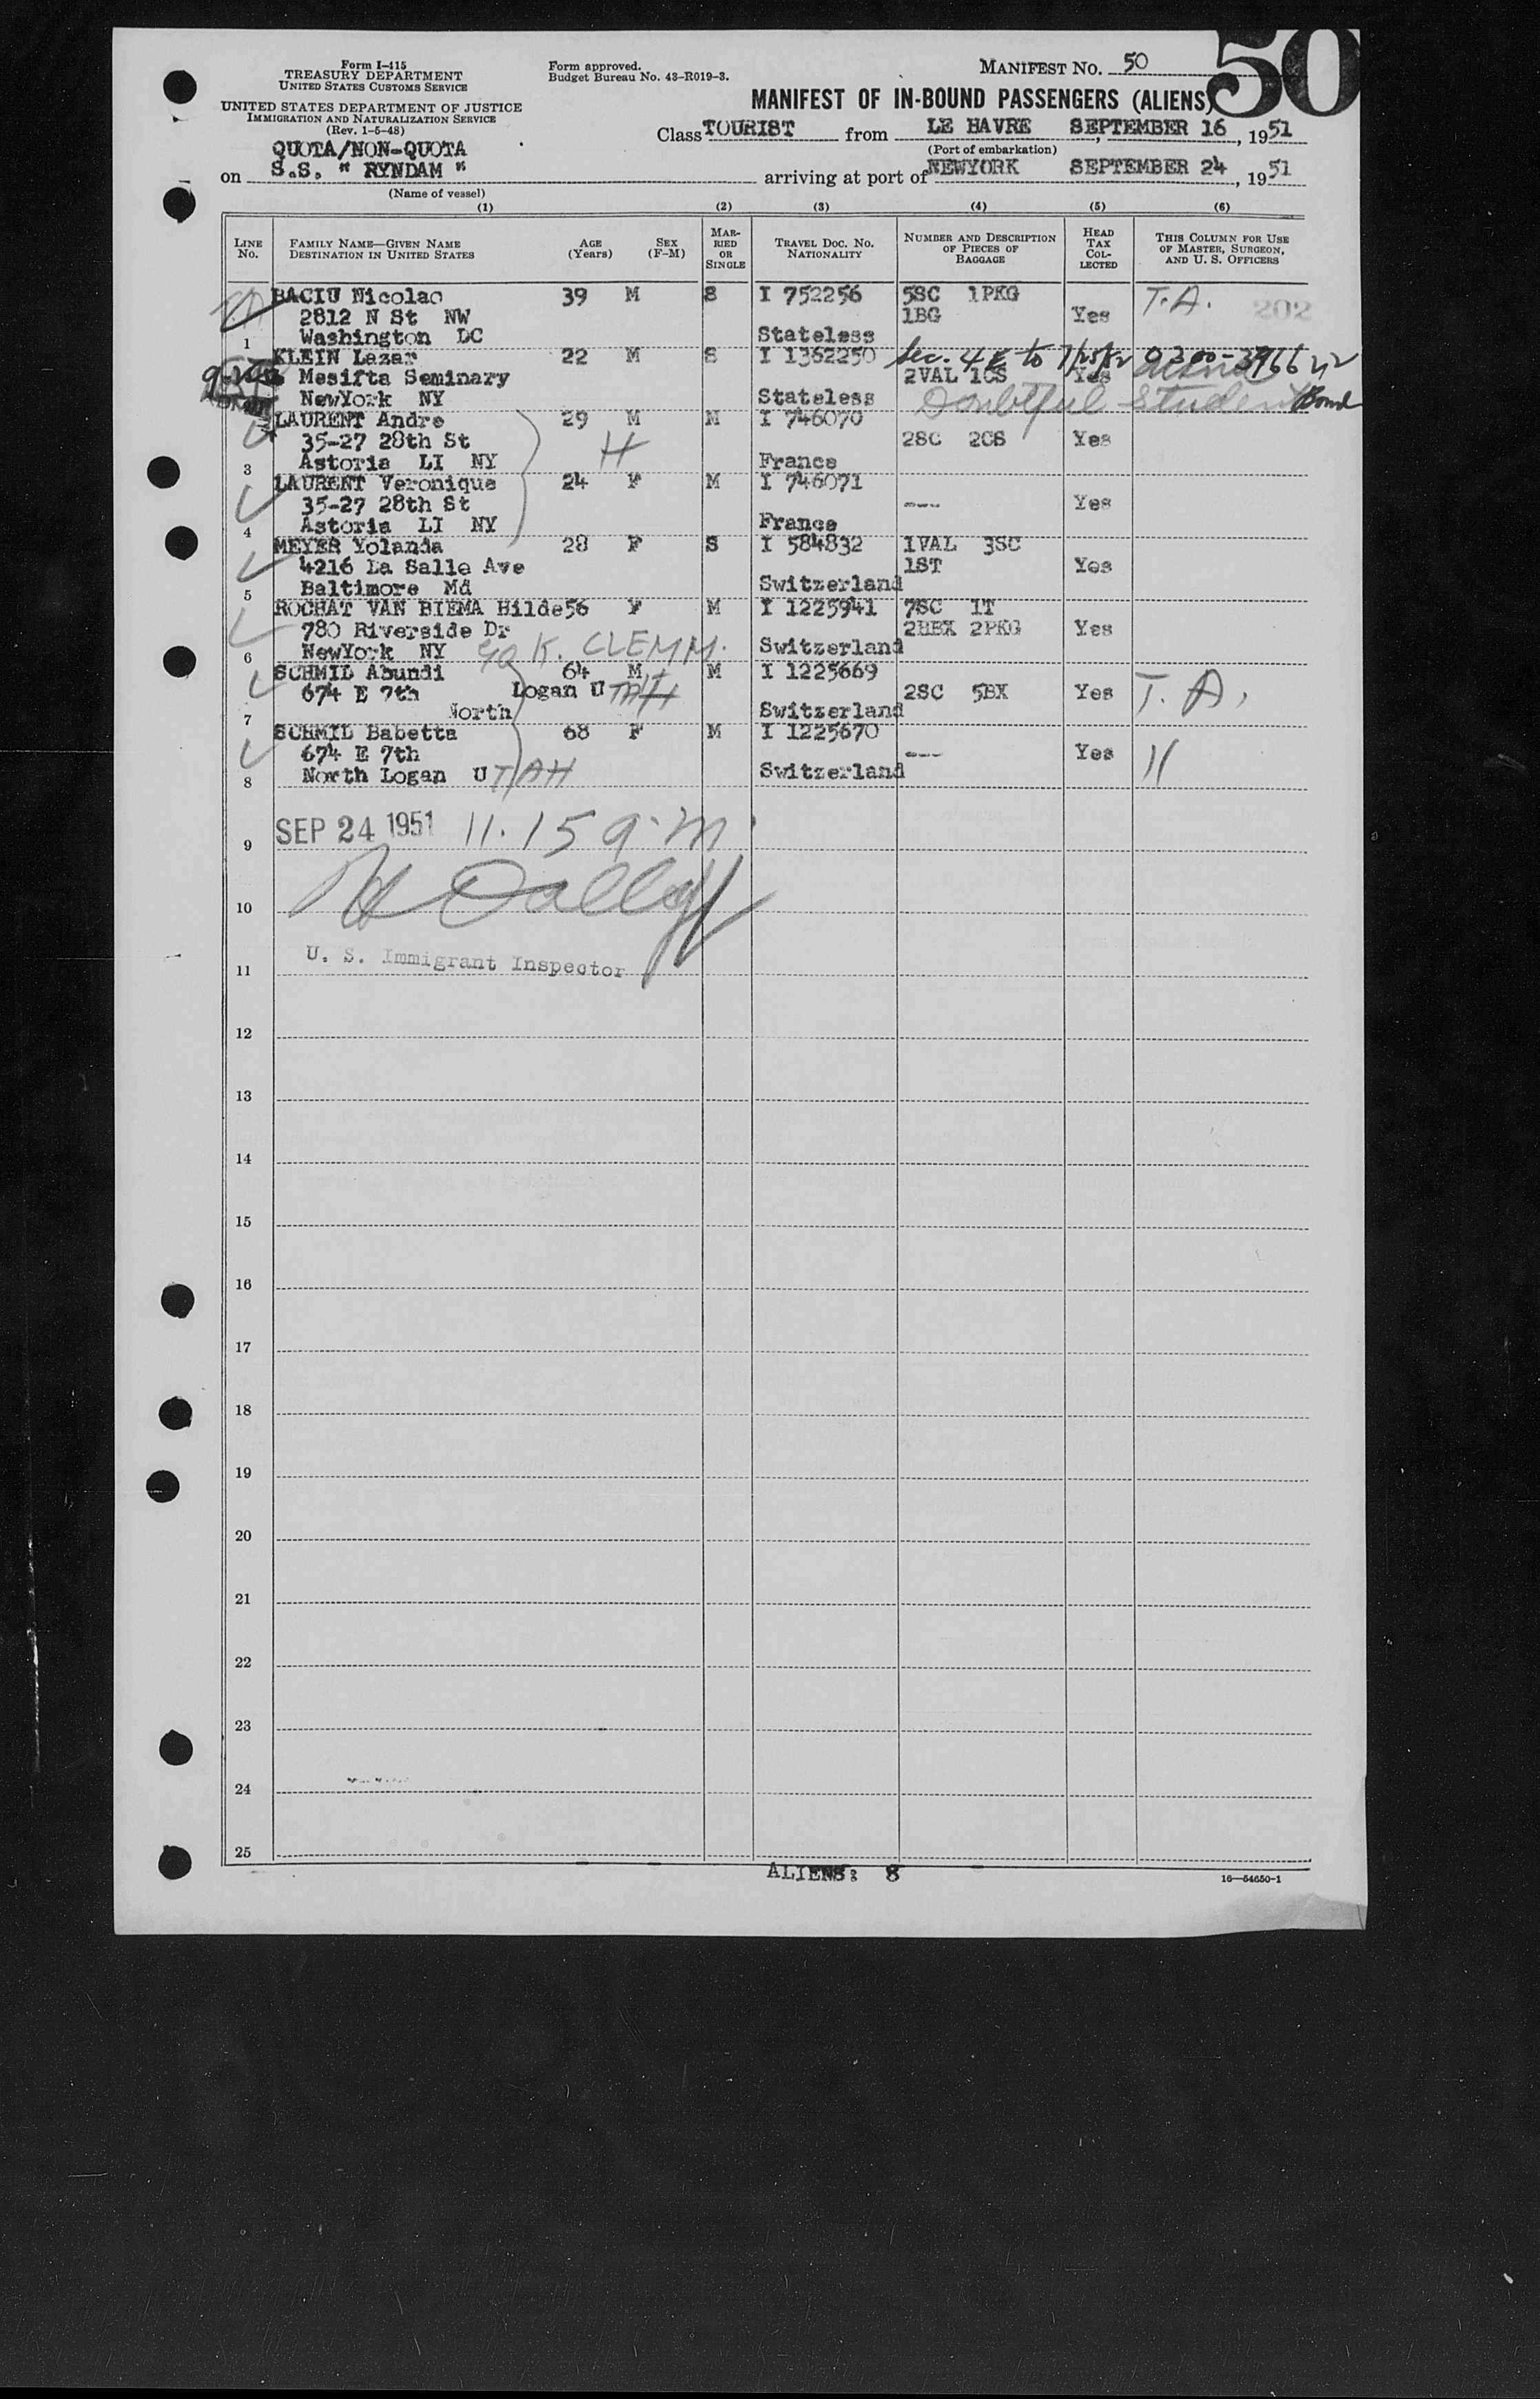 50
Form I-415
TREASURY DEPARTMENT
UNITED STATES CUSTOMS SERVICE
UNITED STATES DEPARTMENT OF JUSTICE
IMMIGRATION AND NATURALIZATION SERVICE
(Rev. 1-5-48)
Form approved.
Budget Bureau No. 43-R019-3.
MANIFEST NO. 50
MANIFEST OF IN-BOUND PASSENGERS (ALIENS)
Class TOURIST from LE HAVRE SEPTEMBER 16, 1951
(Port of embarkation)
QUOTA/NON-QUOTA
on S.S. " RYNDAM " arriving at port of NEWYORK SEPTEMBER 24, 1951
(Name of vessel)
(1) (2) (3) (4) (5) (6)
LINE NO. FAMILY NAME—GIVEN NAME DESTINATION IN UNITED STATES AGE (Years) SEX (F-M) MARRIED OR SINGLE TRAVEL DOC. NO. NATIONALITY NUMBER AND DESCRIPTION OF PIECES OF BAGGAGE HEAD TAX COLLECTED THIS COLUMN FOR USE OF MASTER, SURGEON, AND U. S. OFFICERS
BACIU Nicolao 39 M S I 752256 5SC 1PKG T.A. 202
2812 N St NW 1BG Yes
1 Washington DC Stateless
KLEIN Lazar 22 M S I 1362250 Sec. 4 E to
Mesifta Seminary 2VAL 1CS Yes
NewYork NY Stateless Doubtful Student Bond
LAURENT Andre 29 M M I 746070
35-27 28th St H 2SC 2CS Yes
3 Astoria LI NY France
LAURENT Veronique 24 F M I 746071
35-27 28th St --- Yes
4 Astoria LI NY France
MEYER Yolanda 28 F S I 584832 1VAL 3SC
4216 La Salle Ave 1ST Yes
5 Baltimore Md Switzerland
ROCHAT VAN BIEMA Hilde 56 F M I 1225941 7SC 1T
780 Riverside Dr 2HBX 2PKG Yes
6 NewYork NY K. CLEMM. Switzerland
SCHMID Abundi 64 M M I 1225669
674 E 7th Logan UTAH 2SC 5BX Yes T. A.
7 North Switzerland
SCHMID Babetta 68 F M I 1225670
674 E 7th --- Yes "
8 North Logan UTAH Switzerland
9 SEP 24 1951 11.15 a.m.
10
11 U. S. Immigrant Inspector
12
13
14
15
16
17
18
19
20
21
22
23
24
25
ALIENS: 8
16—54650-1